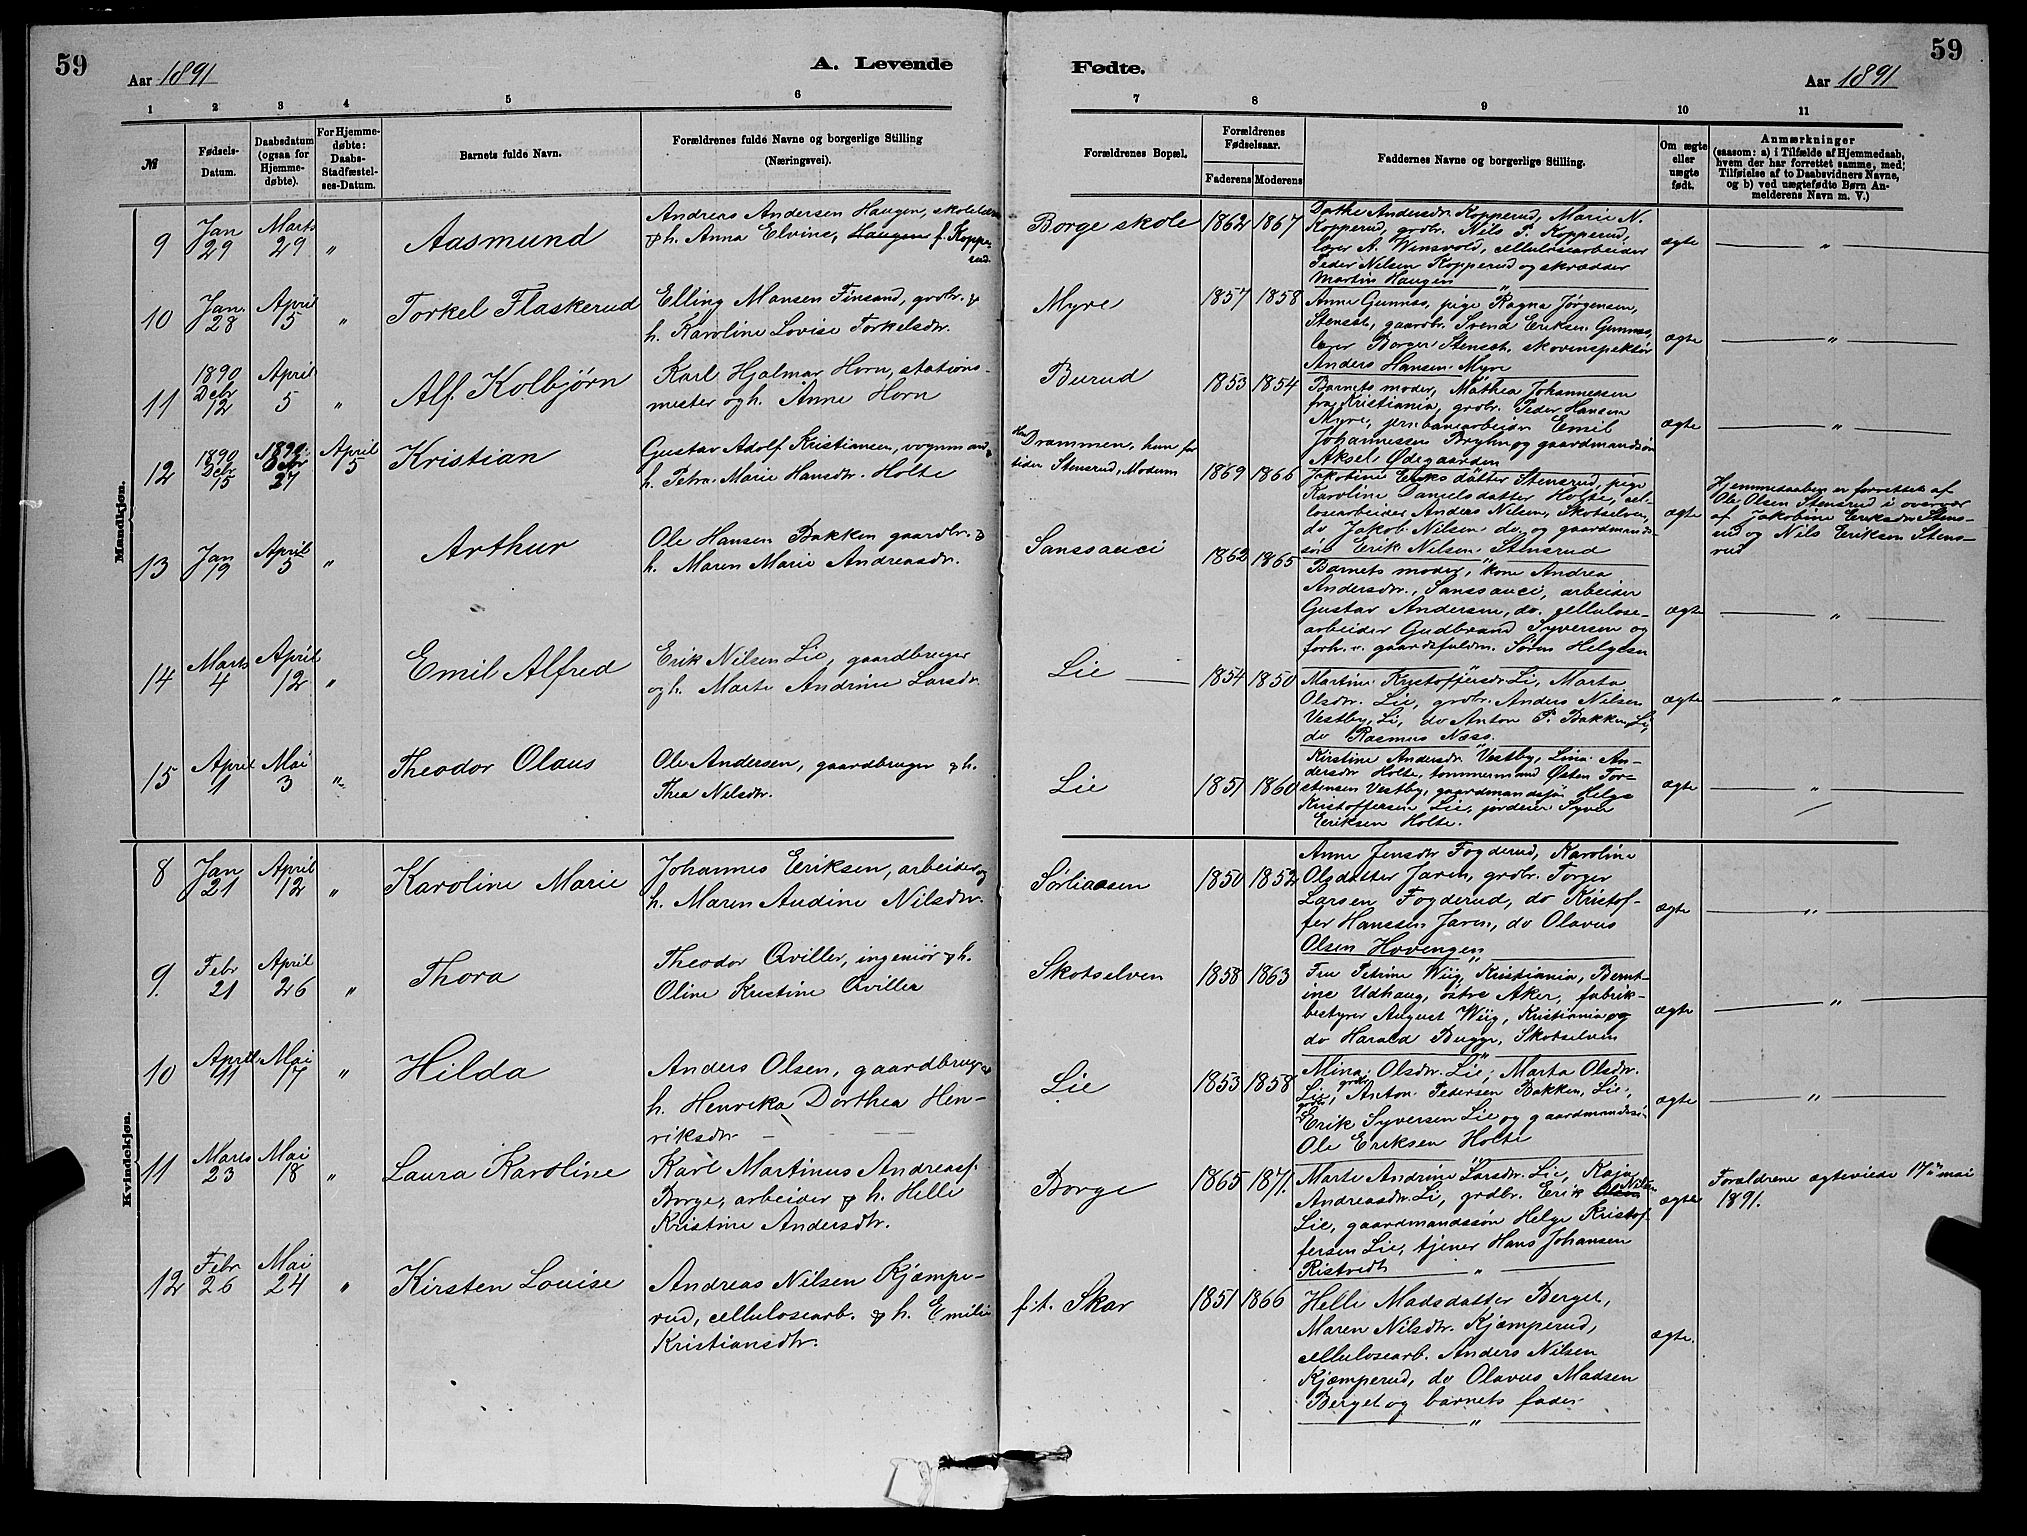 59
Aar 1891
A. Levende
1 2 3 4 5 6
№
Fødsels-
Datum.
Daabsdatum
(ogsaa for
Hjemme-
døbte).
For Hjemme-
døbte:
Daabs-
Stadfæstel-
ses-Datum.
Barnets fulde Navn.
Forældrenes fulde Navne og borgerlige Stilling
(Næringsvei).
Fødte.
Aar 1891
59
7 8 9 10 11
Forældrenes Bopæl.
Forældrenes
Fødselsaar.
Faderens Moderens
Faddernes Navne og borgerlige Stilling.
Om ægte
eller
uægte
født.
Anmærkninger
(saasom: a) i Tilfælde af Hjemmedaab,
hvem der har forrettet samme, med
Tilføielse af to Daabsvidners Navne,
og b) ved uægtefødte Børn An-
melderens Navn m. V.)
Mandkjøn.
9
Jan
29
Marts
29
"
Aasmund
Andreas Andersen Haugen, skolelærer
& h. Anna Elvine, Haugen f. Koppe-
rud
Borge skole
1862 1867
Dothe Andersdr. Kopperud, Marie N.
Kopperud, grdbr. Nils P. Kopperud,
lærer A. Winsvold, cellulosearbeider
Peder Nilsen Kopperud og skrædder
Martin Haugen
ægte
"
10
Jan.
28
April
5
"
Torkel Flaskerud
Elling Hansen Finsand, grdbr. &
h. Karoline Lovise Torkelsdr.
Myre
1857 1858
Anne Gunnes, pige Ragna Jørgensen,
Stenset, gaardbr. Svend Eriksen Gunnes,
lærer Borger Stenseth, skovinspektør
Anders Hansen Myre
ægte
"
11
1890
Debr
12
April
5
"
Alf Kolbjørn
Karl Hjalmar Horn, stations-
mester og h. Anne Horn
Burud
1853 1854
Barnets moder, Mathea Johannessen
fra Kristiania, grdbr. Peder Hansen
Myre, jernbanearbeider Emil
Johannessen Bryhn og gaardmandssøn
Aksel Ødegaarden
ægte
"
12
1890
Debr
15
1890
Debr
27
April
5
Kristian
Gustav Adolf Kristiansen, vognmand &
h. Petra Marie Hansdr. Holte
Han Drammen, hun for
tiden Stensrud, Modum
1869 1866
Jakobine Eriksdatter Stensrud, pige
Karoline Danielsdatter Holte, cel-
losearbeider Anders Nilsen, Skotselven,
do Jakob Nilsen do, og gaardmands-
søn Erik Nilsen Stensrud
ægte
Hjemmedaaben er forrettet af
Ole Olsen Stensrud i overvær
af Jakobine Eriksdr. Stens-
rud og Nils Eriksen Stens-
rud
13
Jan
19
April
5
"
Arthur
Ole Hansen Bakken gaardbr. &
h. Maren Marie Andreasdr.
Sanssouci
1862 1865
Barnets moder, kone Andrea
Andersdr., Sanssouci, arbeider
Gustav Andersen, do, cellulose-
arbeider Gudbrand Syversen og
forh. v. gaardsfuldm. Søren Helgesen
ægte
"
14
Marts
4
April
12
"
Emil Alfred
Erik Nilsen Lie, gaardbruger
og h. Marte Andrine Larsdr.
Lie
1854 1850
Martine Kristoffersdr. Li, Marta
Olsdr. Lie, grdbr. Anders Nilsen
Vestby, Li, do Anton P. Bakken, Li,
do Rasmus Næss.
ægte
"
15
April
1
Mai
3
"
Theodor Olaus
Ole Andersen, gaardbruger & h.
Thea Nilsdr.
Lie
1851 1860
Kirstine Andersdr. Vestby, Lina An-
dersdr Holte, tømmermand Østen Tor-
stensen Vestby, gaardmandssøn Helge
Kristoffersen Lie, jordeier Syver
Eriksen Holte.
ægte
"
Kvindekjøn.
8
Jan
21
April
12
"
Karoline Marie
Johannes Eriksen, arbeider og
h. Maren Andine Nilsdr.
Sørliaasen
1850 1852
Anne Jensdr Fogderud, Karoline
Olsdatter Jaren, grdbr. Torger
Larsen Fogderud, do Kristof-
fer Hanssen Jaren, do Olavus
Olsen Hovengen
ægte
"
9.
Febr
21
April
26
"
Thora
Theodor Qviller, ingeniør & h.
Oline Kristine Qviller
Skotselven
1858 1863
Fru Petrine Wiig, Kristiania, Bernt-
ine Udhaug, østre Aker, fabrik-
bestyrer August Wiig, Kristiania og
do Harald Bugge, Skotselven
ægte
"
10
April
11
Mai
17
"
Hilda
Anders Olsen, gaardbruger &
h. Henrika Dorthea Hen-
riksdr
Lie
1853 1858
Mina Olsdr. Lie, Marta Olsdr.
Lie, grdbr. Anton Pedersen Bakken, Lie,
grdbr. Erik Syversen Lie og gaardmandss.
Ole Eriksen Holte
ægte
"
11
Marts
23
Mai
18
"
Laura Karoline
Karl Martinus Andreass.
Borge, arbeider & h. Helle
Kristine Andersdtr.
Borge
1865 1871.
Marte Andrine Larsdr. Lie, Kaja
Andreasdr. Li, grdbr. Erik Olsen Nilsen
Lie, gaardmandssøn Helge Kristof-
fersen Lie, tjener Hans Johansen
Ristvedt
ægte
Forældrene ægteviede 17de mai
1891.
12
Febr
26
Mai
24
"
Kirsten Louise
Andreas Nilsen Kjæmpe-
rud, cellulosearb. & h. Emilie
Kristiansdtr.
f.t. Skar
1851 1866
Helle Madsdatter Berget,
Maren Nilsdtr. Kjæmperud,
cellulosearb. Anders Nilsen
Kjæmperud, do Olavus Madsen
Berget og barnets fader
ægte.
"